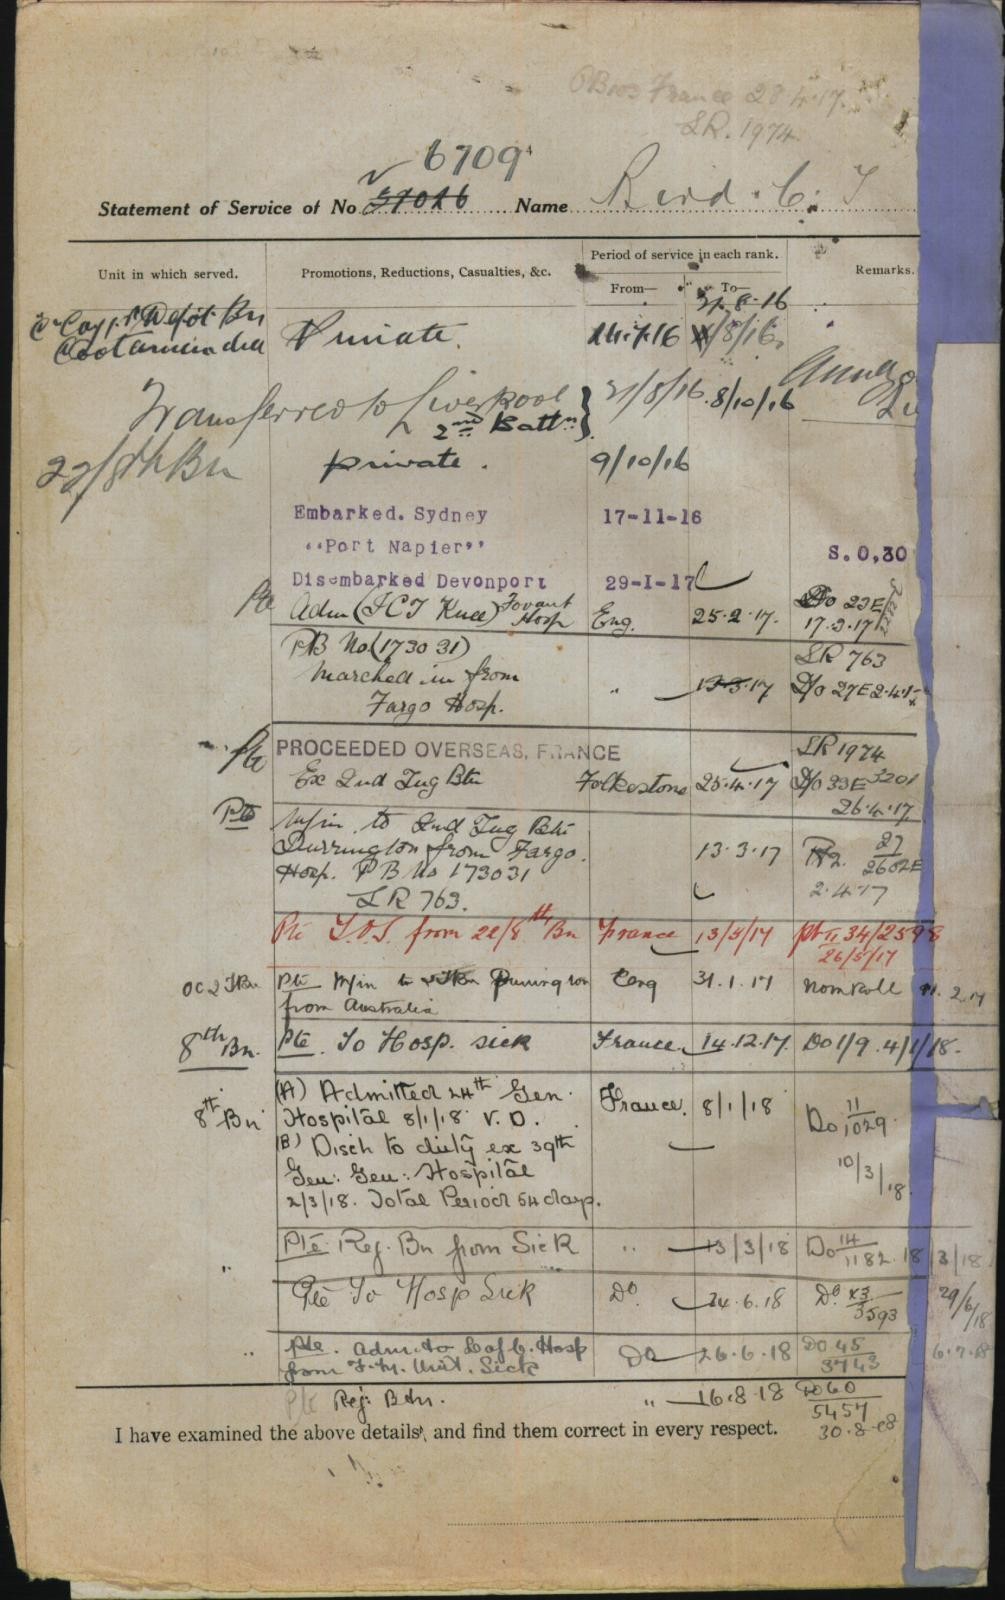 France 28.4.17.
LR. 1974
6709
Statement of Service of No. 37026 Name C.
Unit in which served. Promotions, Reductions, Casualties, &c. Period of service in each rank. Remarks.
From— To—
31.8.16
Depot Bn
Cootamundra Private. 16 /8/16.
Transferred to Liverpool 31/8/16 8/10/16
2nd Battn
22/8th Bn private. 9/10/16
Embarked. Sydney 17-11-16
"Port Napier" S.O,30
Disembarked Devonport 29-I-17
Pte Adm (ICT Knee) Fovant Hosp Eng. 25.2.17. Do 23E
17.3.17
PB No. (173031) LR 763
marched in from " 13.3.17 D/o 27E 2.4.17
Fargo Hosp.
Pte PROCEEDED OVERSEAS, FRANCE LR 1974
Ex 2nd Trg Btn Folkestone 25.4.17 D/o 33E 3201
26.4.17
Pte M/in to 2nd Trg Btn
Durrington from Fargo. 13.3.17 27
Hosp. PB No 173031 2602E
LR 763. 2.4.17
Pte T.O.S. from 22/8th Bn France 13/5/17 pt II 34/2598
26/5/17
OC 2 TBn Pte M/in to from Australia Eng 31.1.17 nom roll 2.17
8th Bn. Pte. To Hosp. sick France. 14.12.17. Do 1/9. 4/1/18.
8th Bn (A) Admitted 24th Gen. France. 8/1/18 Do 11
Hospital 8/1/18 V.D. 1029
(B) Disch to duty ex 39th
Gen: Gen: Hospital 10/3/18
2/3/18. Total Period 54 days.
Pte Rej. Bn from Sick " 13/3/18 Do 14
1182. 18/3/18
" Pte To Hosp Sick Do 24.6.18 Do. 43 29/6/18
3593
" Pte. adm. to Hosp Do 26.6.18 DO 45 6.7.18
from Unit. Sick 3743
Pte Rej. Btn. " 16.8.18 Do 60
5457
I have examined the above details, and find them correct in every respect. 30.8.18